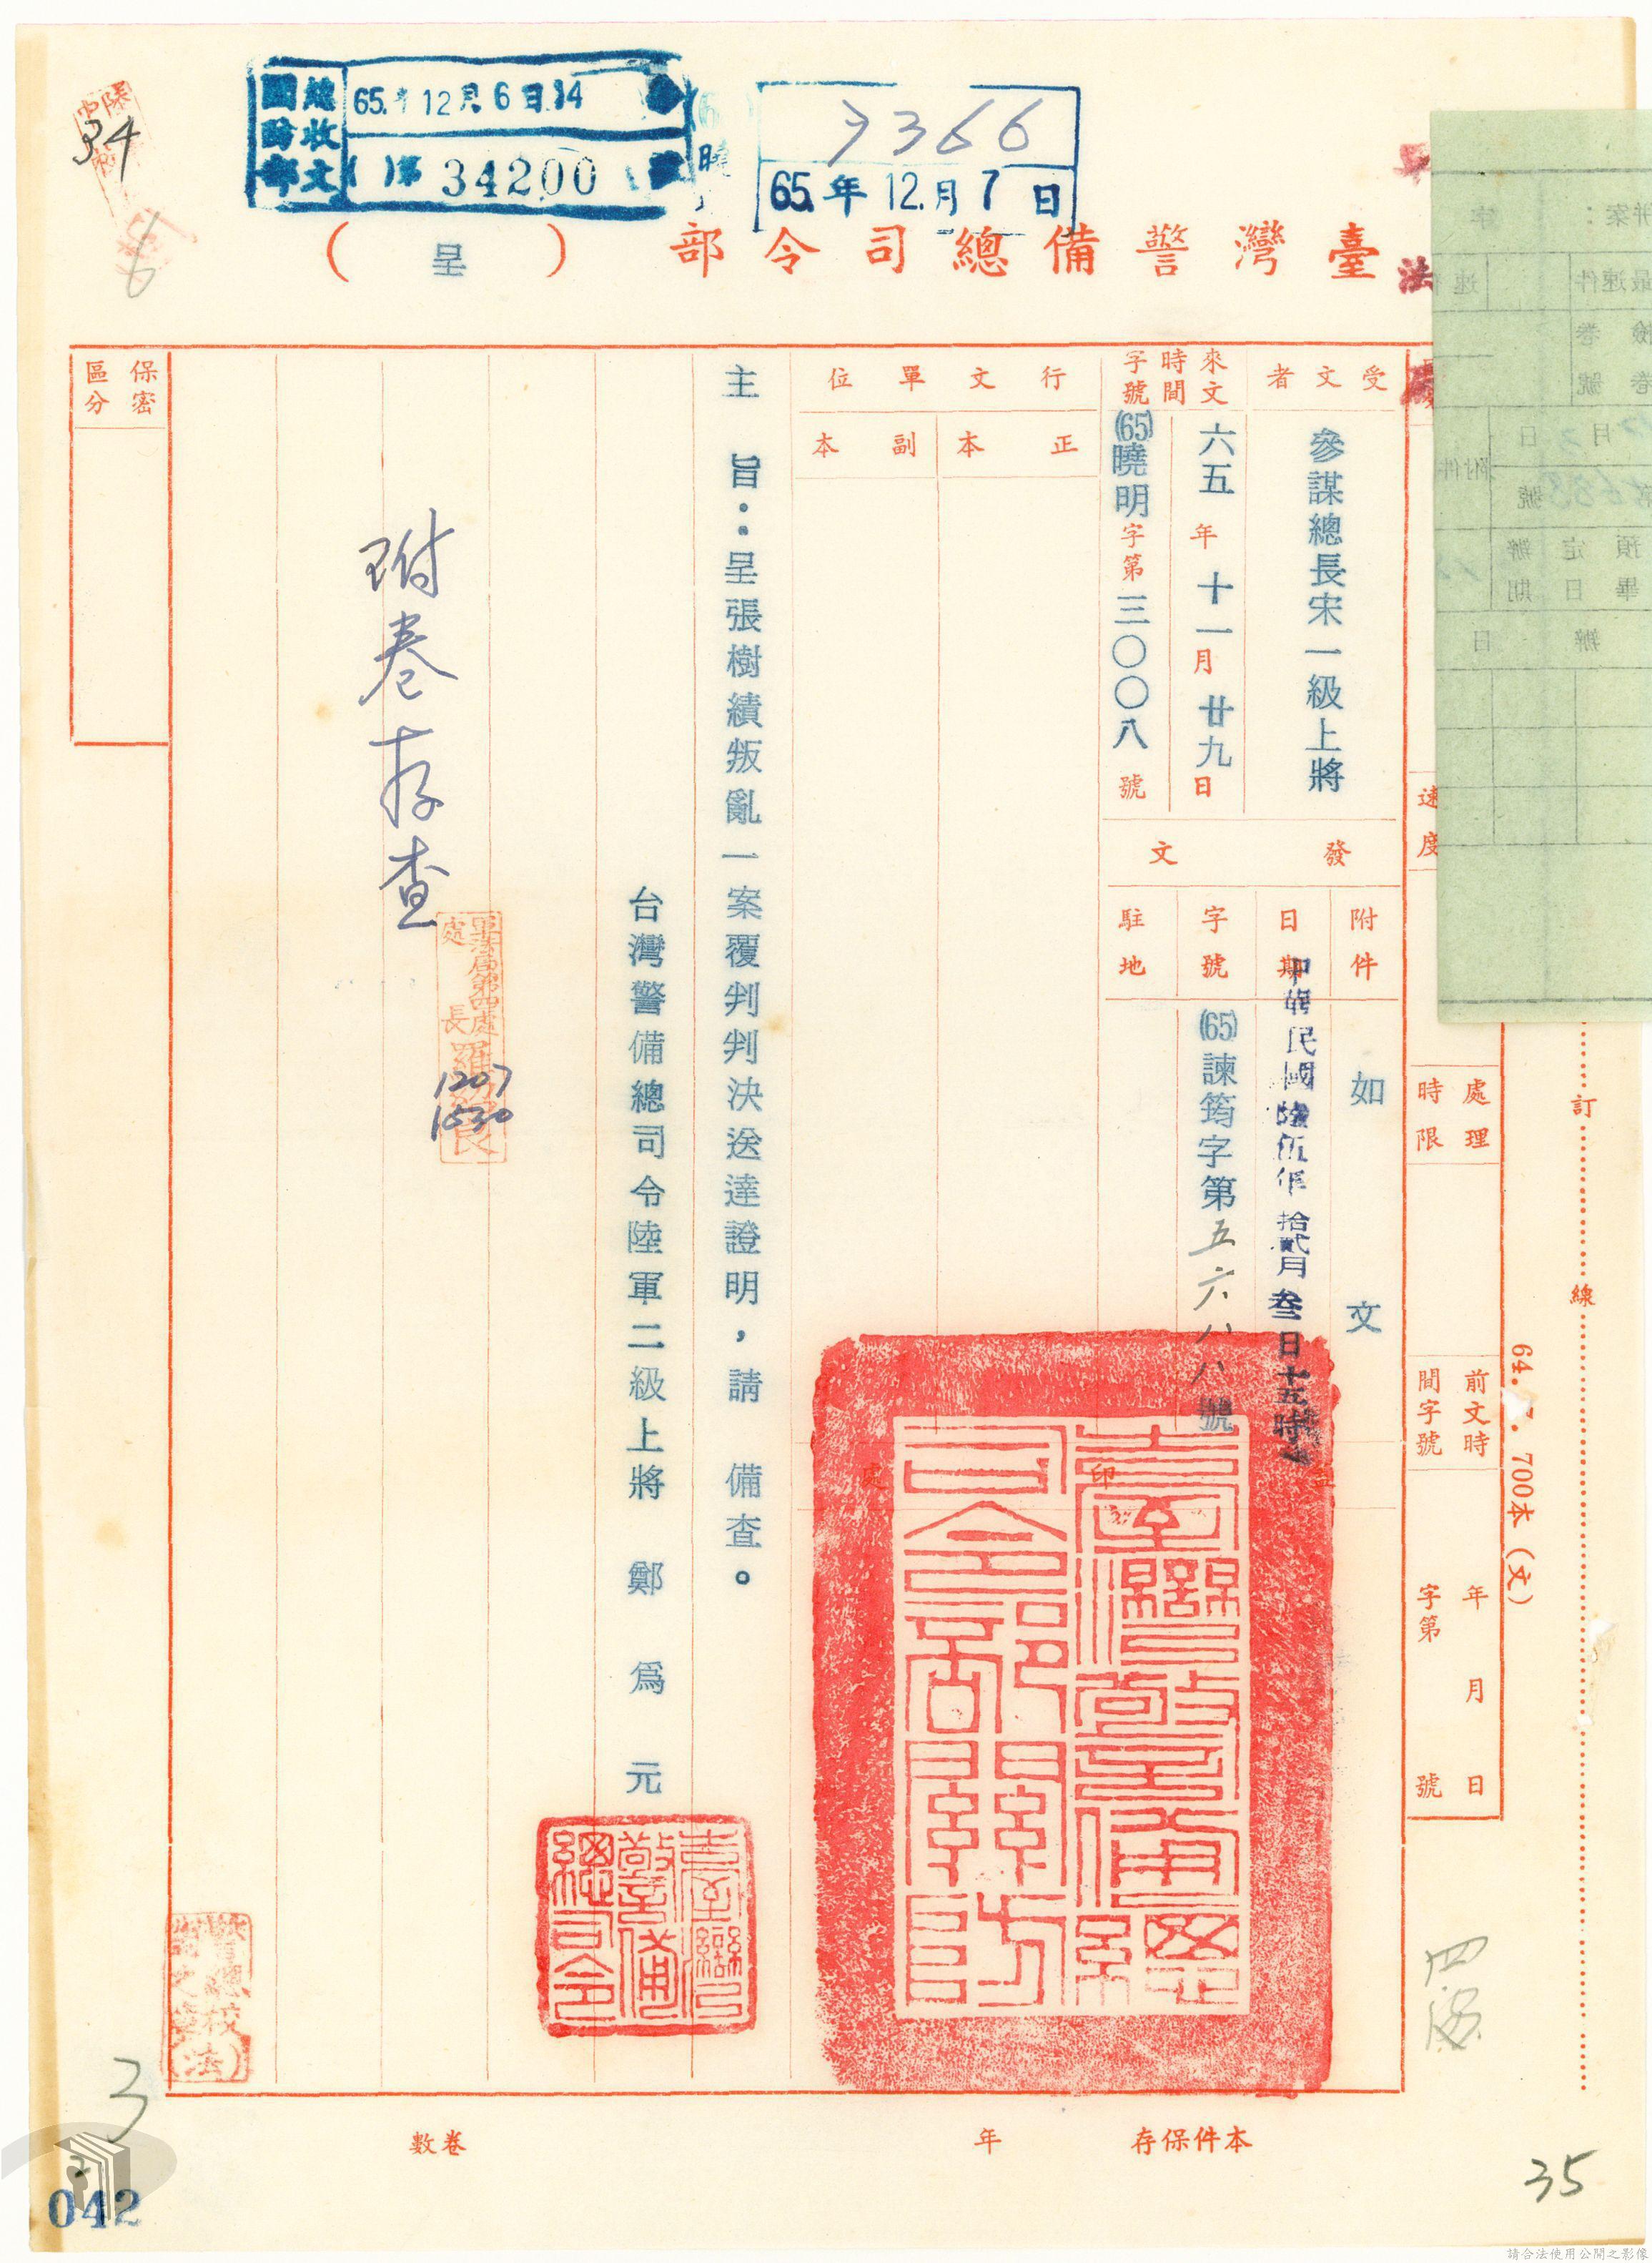 34
6
國防部
總收文
65.年12月6日.14
( )第34200號
7366
65.年12.月7日
臺灣警備總司令部(呈)
軍法
保密區分
受文者
參謀總長宋一級上將
來文時間字號
六五年十一月廿九日
(65)曉明字第三〇〇八號
行文單位
正本
副本
發文
附件
如文
日期
中華民國陸伍年拾貳月叁日十五時
字號
(65)諫筠字第五六八八號
駐地
蓋印處
臺灣警備總司令部關防
主旨：呈張樹績叛亂一案覆判判決送達證明，請 備查。
台灣警備總司令陸軍二級上將 鄭爲元
臺灣警備總司令
附卷存查
軍法局第四處處長
1207
1530
速度
處理時限
前文時間字號
年 月 日
字第 號
訂
線
64. 7. 700本（文）
併案：
最速件
速
卷號
附件
月 日
號
預定辦畢日期
本件保存 年
卷數
3
35
042
請合法使用公開之影像